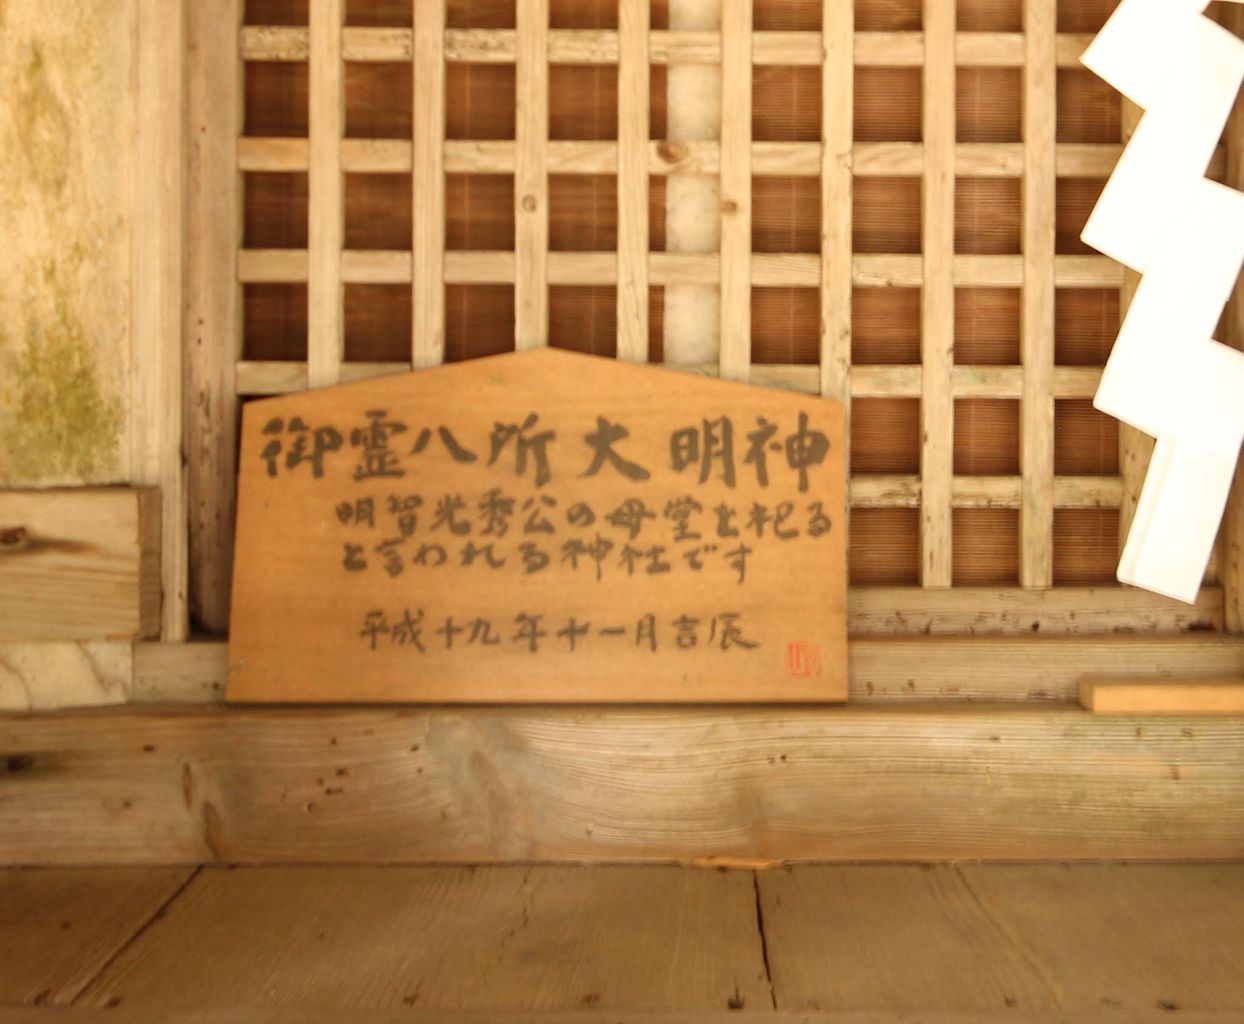 御霊八所大明神
明智光秀公の母堂を祀る
と言われる神社です
平成十九年十一月吉辰